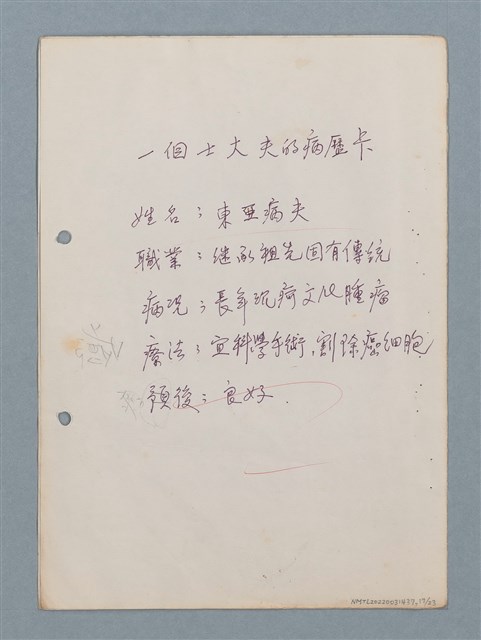 一個士大夫的病歷卡
姓名：東亞病夫
職業：继承祖先固有傳統
病況：長年沉疴文化腫瘤
療法：宜科學手術、割除癌細胞
預後：良好.